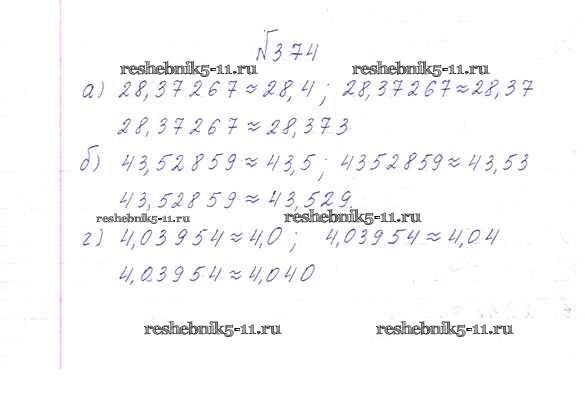 №374
reshebnik5-11.ru reshebnik5-11.ru
а) 28,37267≈28,4; 28,37267≈28,37
28,37267≈28,373
б) 43,52859≈43,5; 4352859≈43,53
43,52859≈43,529.
reshebnik5-11.ru reshebnik5-11.ru
г) 4,03954≈4,0; 4,03954≈4,04
4,03954≈4,040
reshebnik5-11.ru reshebnik5-11.ru